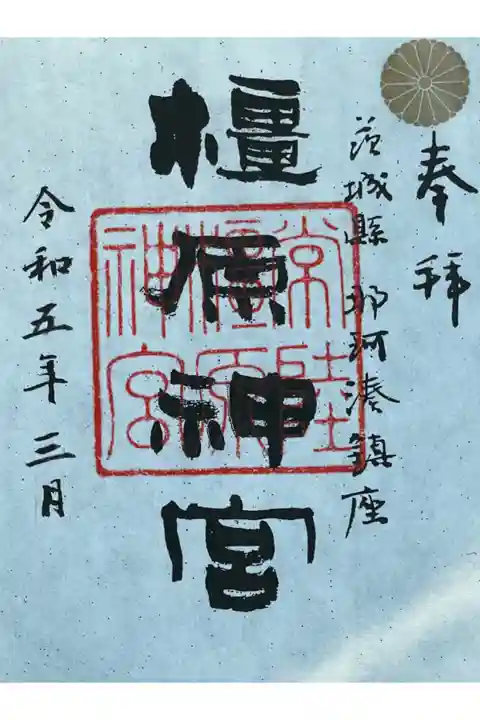 奉拜
茨城縣 那珂湊鎮座
橿原神宮
常陸
橿原
神宮
令和五年三月